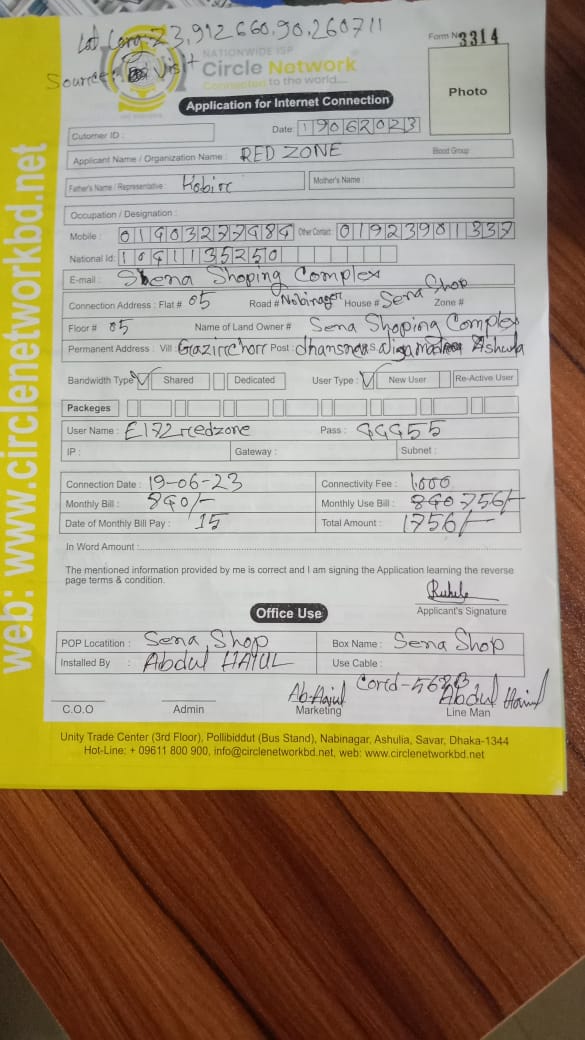 Lat Long: 23.912660,90.260711
Source: Visit
Form No 3314
NATIONWIDE ISP
Circle Network
Connected to the world....
Photo
Application for Internet Connection
Date: 19062023
Cutomer ID :
Applicant Name / Organization Name : RED ZONE Blood Group:
Father's Name / Representative : Kobirc Mother's Name :
Occupation / Designation :
Mobile : Other Contact:
National Id:
E-mail : Shena Shoping Complex
Connection Address : Flat # 05 Road # Nobinager House # Sena Shop Zone #
Floor # 05 Name of Land Owner # Sena Shoping Complex
Permanent Address : Vill : Gazircchorr Post :
Bandwidth Type Shared Dedicated User Type : New User Re-Active User
Packeges
User Name : E172_redzone Pass :
IP : Gateway : Subnet :
Connection Date : 19-06-23 Connectivity Fee : 1000
Monthly Bill : 840/- Monthly Use Bill : 840 756/-
Date of Monthly Bill Pay : 15 Total Amount : 1756/-
In Word Amount :
The mentioned information provided by me is correct and I am signing the Application learning the reverse
page terms & condition.
Applicant's Signature
Office Use
POP Locatition : Sena Shop Box Name : Sena Shop
Installed By : Abdul HAIUL Use Cable :
C.O.O Admin Marketing Line Man
Unity Trade Center (3rd Floor), Pollibiddut (Bus Stand), Nabinagar, Ashulia, Savar, Dhaka-1344
Hot-Line: + 09611 800 900, info@circlenetworkbd.net, web: www.circlenetworkbd.net
web: www.circlenetworkbd.net